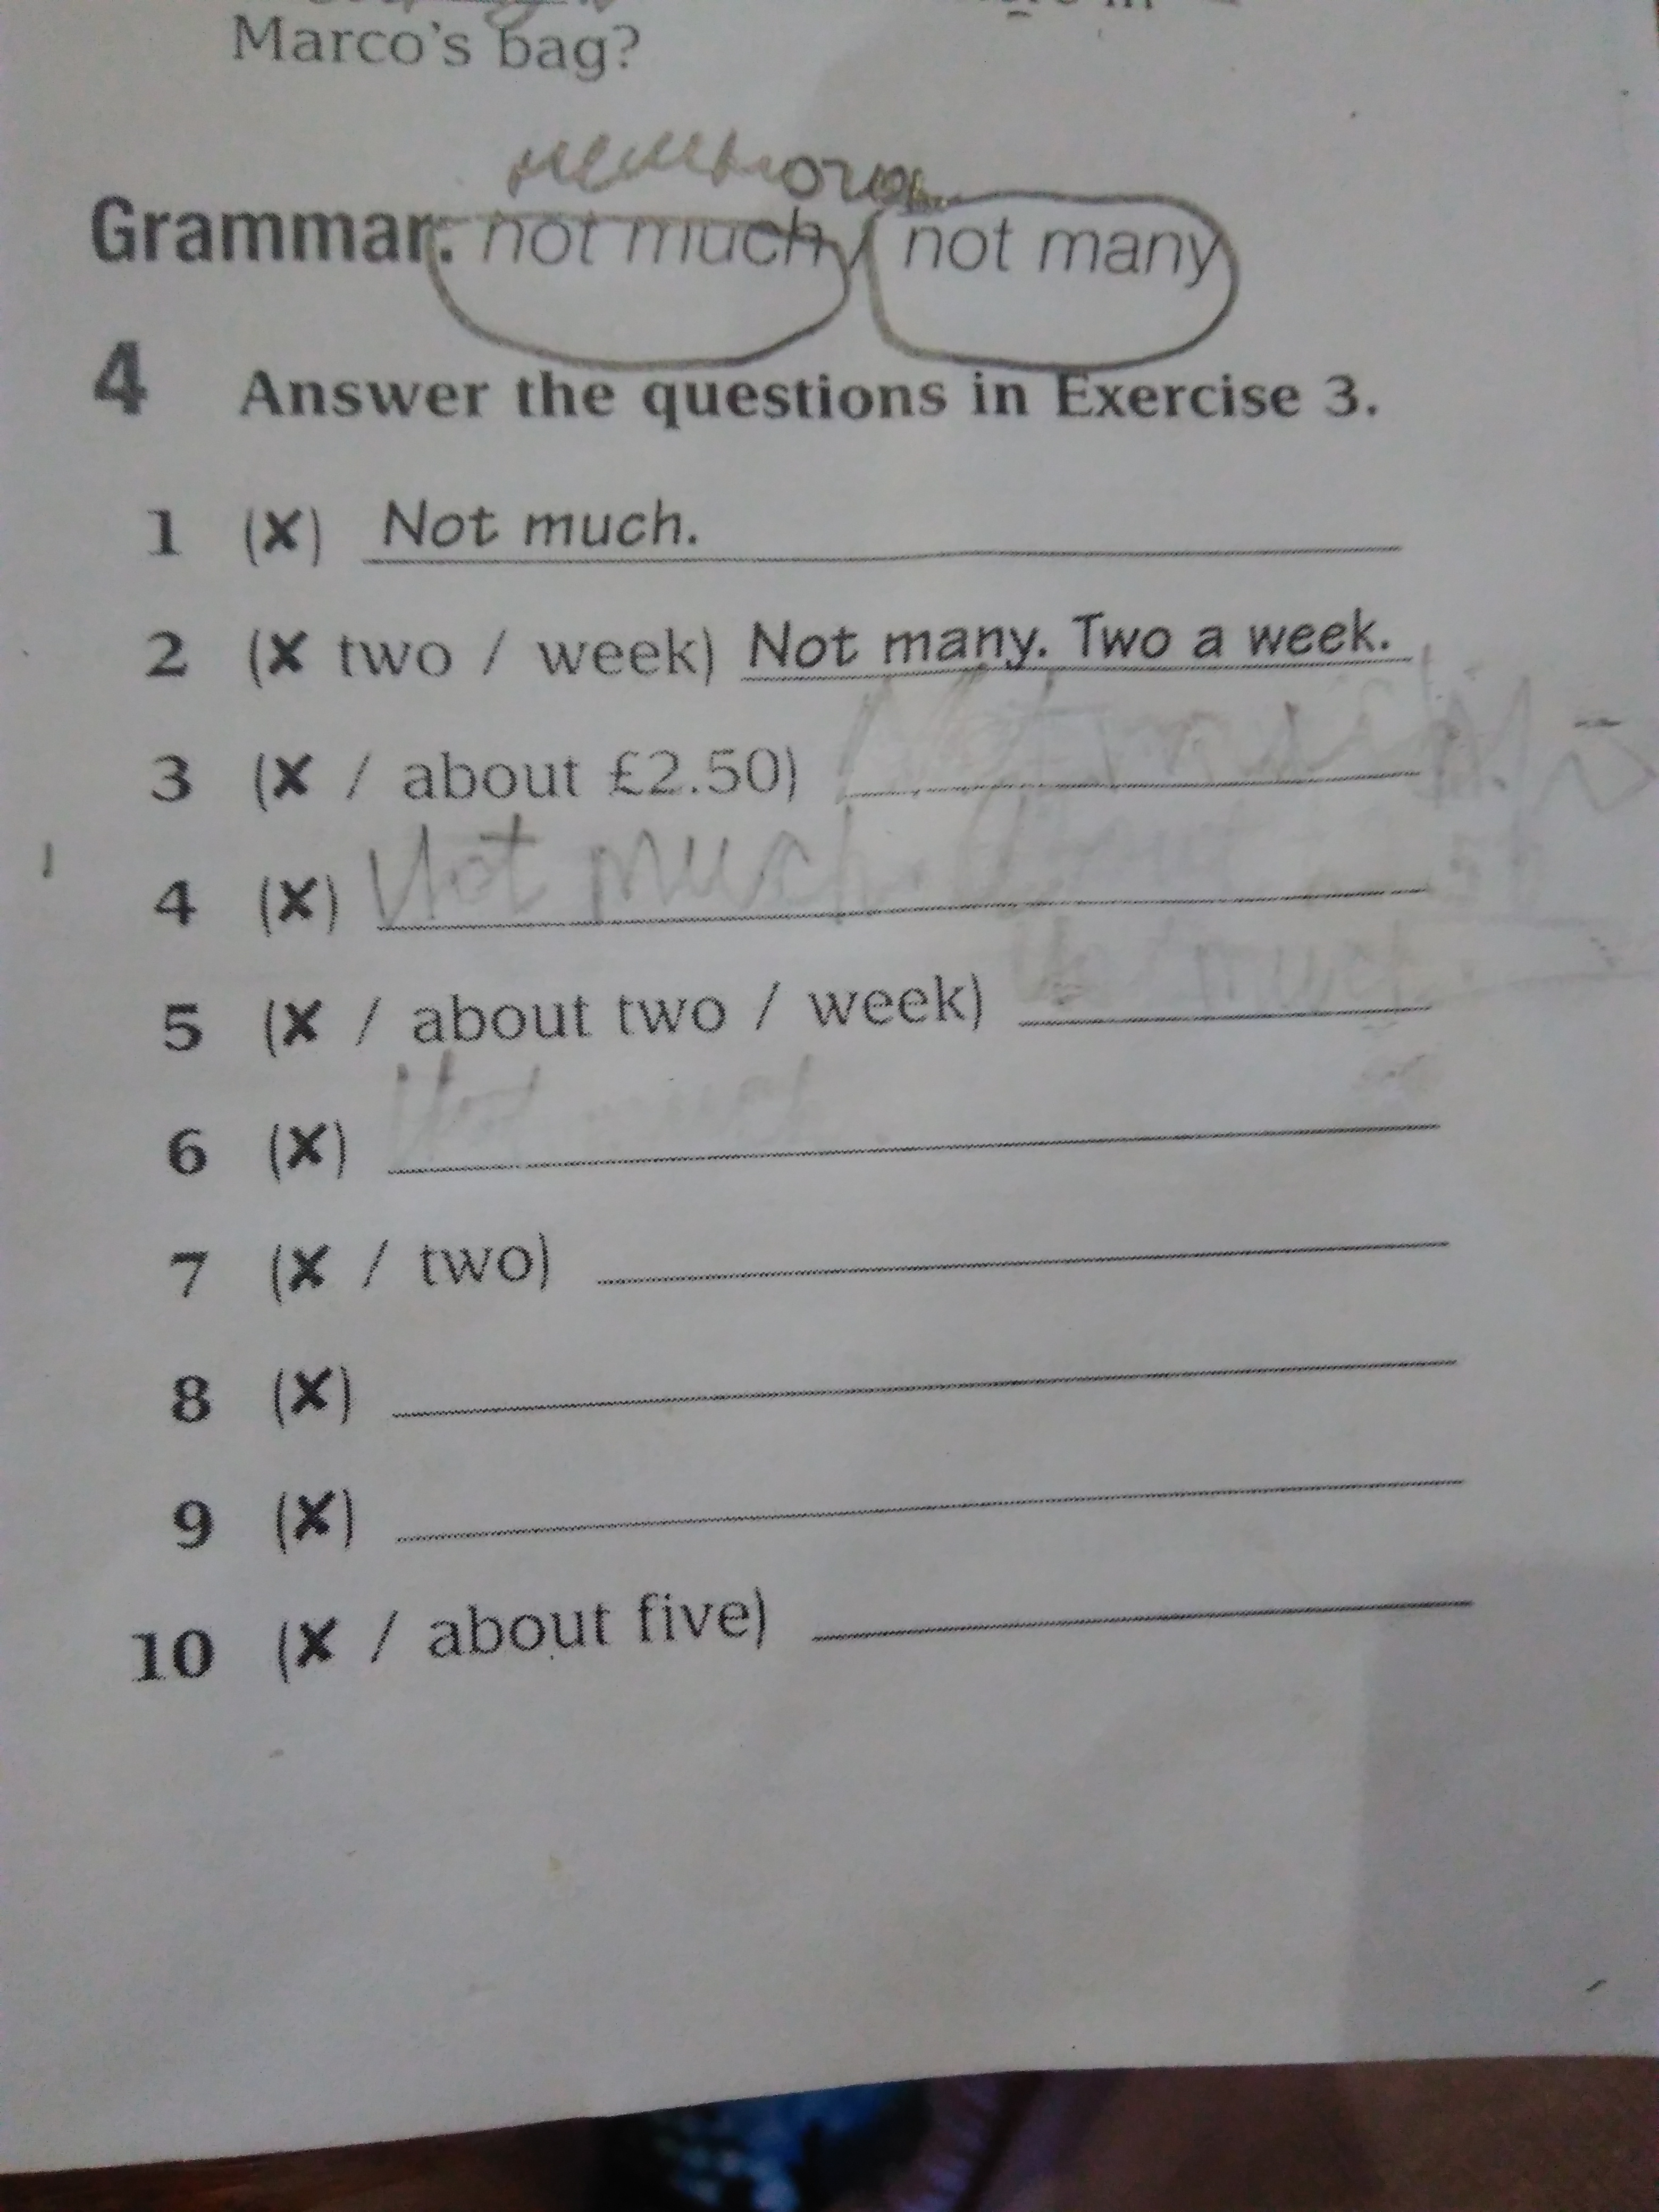 Marco's bag?
Grammar: not much / not many
4 Answer the questions in Exercise 3.
1 (✗) Not much.
2 (✗ two / week) Not many. Two a week.
3 (✗ / about £2.50)
4 (✗) Not much.
5 (✗ / about two / week)
6 (✗)
7 (✗ / two)
8 (✗)
9 (✗)
10 (✗ / about five)